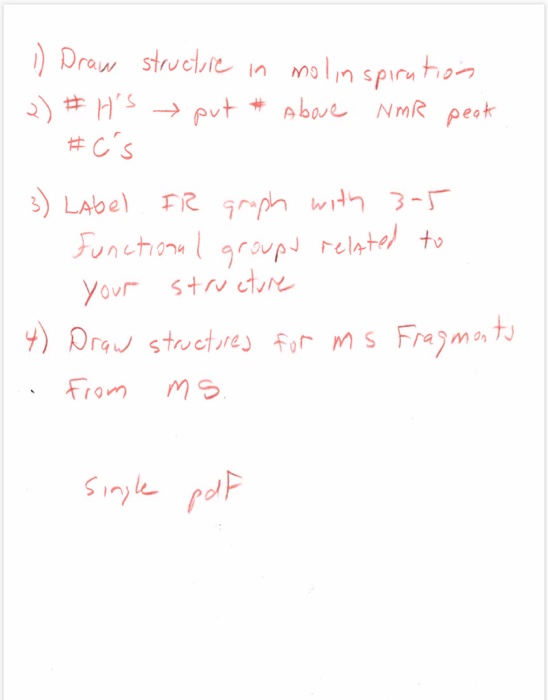 1) Draw structure in molinspiration
2) # H's → put # Above NMR peak
# C's
3) LAbel IR graph with 3-5
Functional groups related to
your structure
4) Draw structures for ms Fragments
From MS.
Single pdF